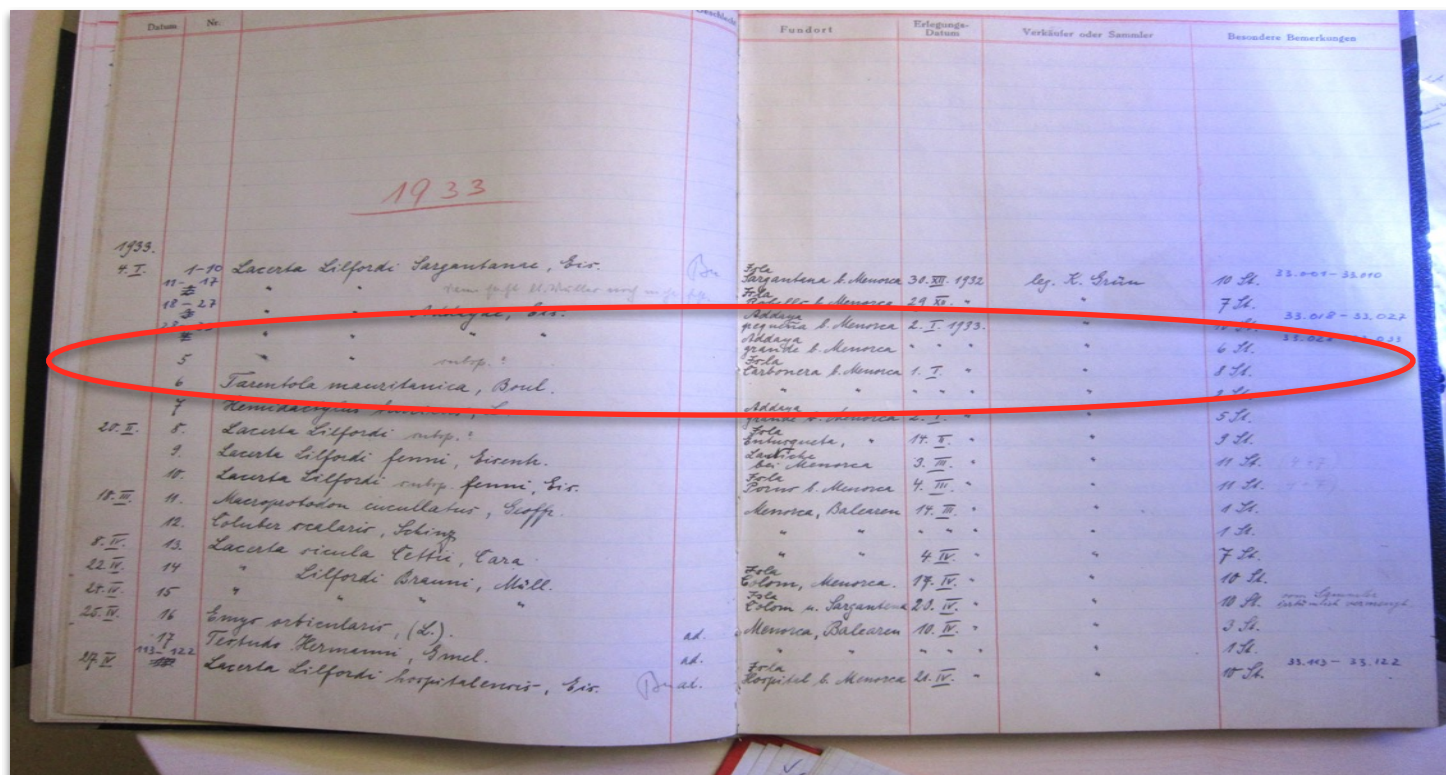 Datum Nr. Fundort Erlegungs-Datum Verkäufer oder Sammler Besondere Bemerkungen
1933
1933.
4. I. 1-10 Lacerta Lilfordi Sargantanae, Eis. Isla Sargantana b. Menorca 30. XII. 1932 leg. K. Grün 10 St. 33.001-33.010
11-17 " " Isla b. Menorca 29. XII. " " 7 St.
18-27 " " Addayae, Eis. Addaya pequeña b. Menorca 2. I. 1933. " 33.018-33.027
" " " " Addaya grande b. Menorca " " " " 6 St.
5 " " subsp. ? Isla Carbonera b. Menorca 1. I. " " 8 St.
6 Tarentola mauritanica, Boul. " " " " " "
7 Hemidactylus Addaya grande b. Menorca 2. I. " " 5 St.
20. II. 8. Lacerta Lilfordi subsp. ? Isla " 14. II. " " 9 St.
9. Lacerta Lilfordi fenni, Eisentr. bei Menorca 3. III. " " 11 St.
10. Lacerta Lilfordi subsp. fenni, Eis. Isla b. Menorca 4. III. " " 11 St.
18. III. 11. Macroprotodon cucullatus, Geoffr. Menorca, Balearen 14. III. " " 1 St.
12. Coluber scalaris, Schinz " " " " " " 1 St.
8. IV. 13. Lacerta sicula Cettii, Cara " " 4. IV. " " 7 St.
22. IV. 14 " Lilfordi Brauni, Müll. Isla Colom, Menorca. 17. IV. " " 10 St.
15 " " " " Isla Colom u. Sargantana 23. IV. " " 10 St. vom Sammler vermengt
25. IV. 16 Emys orbicularis, (L.). Menorca, Balearen 10. IV. " " 3 St.
17 Testudo Hermanni, Gmel. ad. " " " " " " 1 St.
27. IV. 113-122 Lacerta Lilfordi hospitalensis, Eis. ad. Isla Hospital b. Menorca 21. IV. " " 10 St. 33.113-33.122